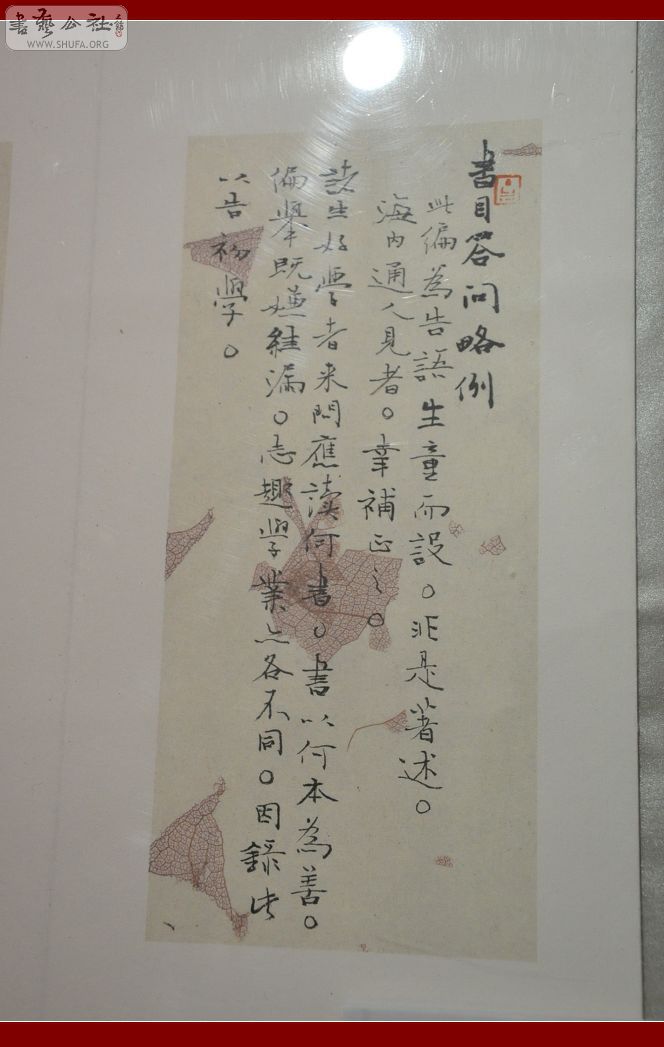 書藝公社
WWW.SHUFA.ORG
書目答問略例
此編為告語生童而設。非是著述。
海內通人見者。幸補正之。
諸生好學者來問應讀何書。書以何本為善。
偏舉既嫌絓漏。志趣學業亦各不同。因錄此
以告初學。